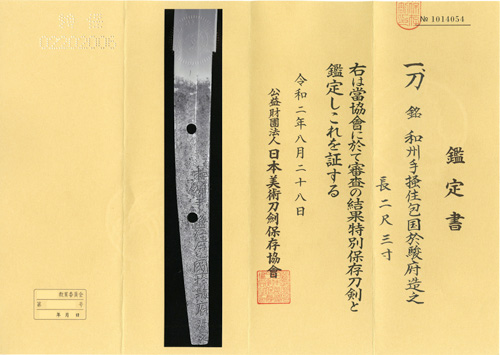 № 1014054
鑑定書
一、刀 銘 和州手掻住包国於駿府造之
長二尺三寸
右は當協會に於て審査の結果特別保存刀剣と
鑑定しこれを証する
令和二年八月二十八日
公益財團法人 日本美術刀劍保存協會
教育委員会
第 号
年 月 日